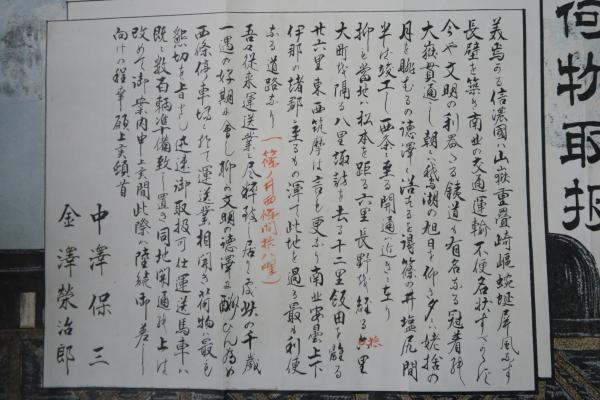 義爲る信濃國ハ山嶽重疊崎嶇蜿蜒屏風をなす
長壁を築き南北の交通運輸不便名状すべからず
今や文明の利器たる鉄道ハ有名なる冠着の
大嶽貫通し朝ハ鵞湖の旭日を仰き夕ハ姨捨の
月を眺むるの徳澤に浴するを得篠の井塩尻間
半は竣工し西條に至る開通近きに在り
抑も當地ハ松本を距る六里長野を経る拾里
大町を隔る八里塩尻を去る十二里飯田を離る
廿六里東西筑摩は言も更なり南北安曇上下
伊那の諸郡に至るもの渾て此地を過る最も利便
なる道路なり
(篠ノ井西條間拾八哩)
吾々従来運送業に尽粹致し居り候處此の千歳
一遇の好期に会し抑の文明の徳澤に酬ひん為め
西條停車場に於て運送業相開き荷物ハ最も
懇切を旨とし迅速御取扱可仕運送馬車ハ
既に数百輌準備致し置き同地開通の上は
改めて御案内申上候間此際ハ陸続御差し
向けの程奉願上候頓首
中澤保三
金澤榮治郎
荷物取扱